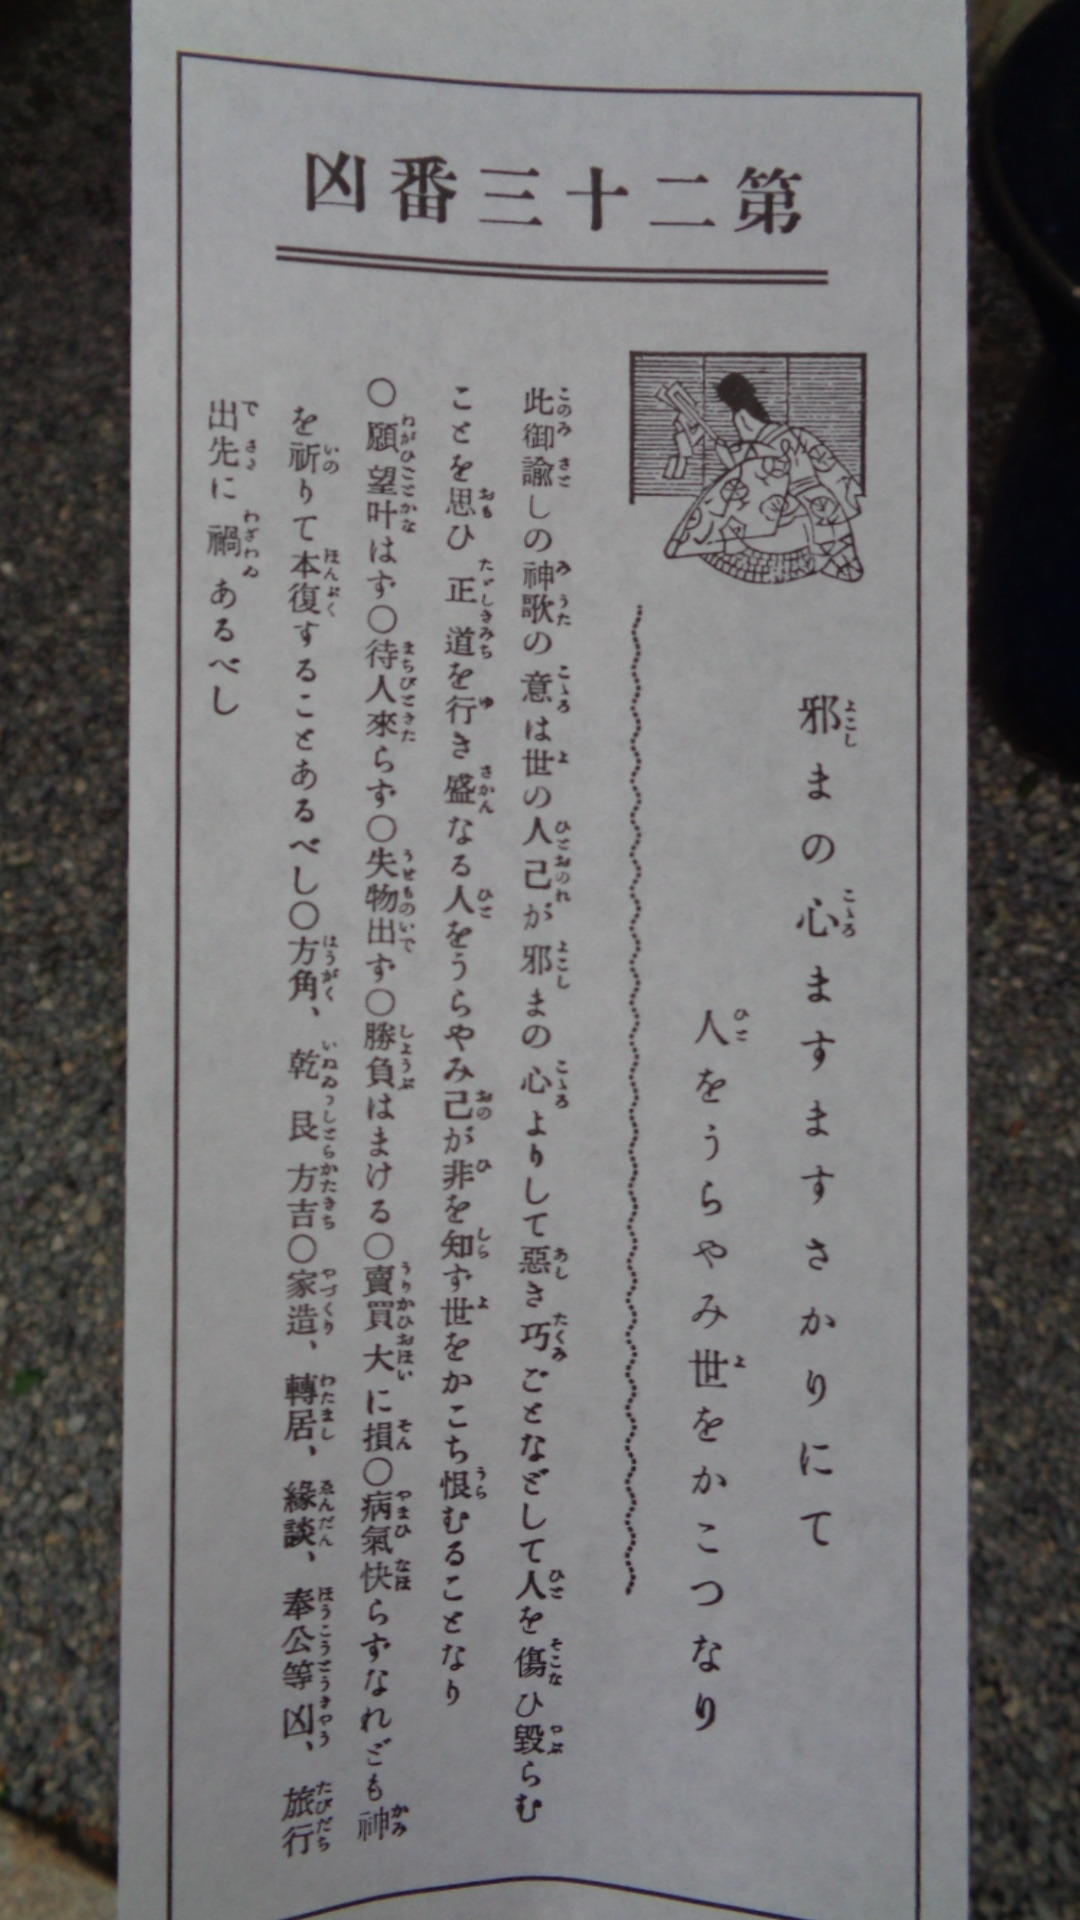 第二十三番凶
邪まの心ますますさかりにて
人をうらやみ世をかこつなり
此御諭しの神歌の意は世の人己が邪まの心よりして惡き巧ごとなどして人を傷ひ毀らむ
ことを思ひ正道を行き盛なる人をうらやみ己が非を知ず世をかこち恨むることなり
○願望叶はず○待人來らず○失物出ず○勝負はまける○賣買大に損○病氣快らずなれども神
を祈りて本復することあるべし○方角、乾艮方吉○家造、轉居、緣談、奉公等凶、旅行
出先に禍あるべし